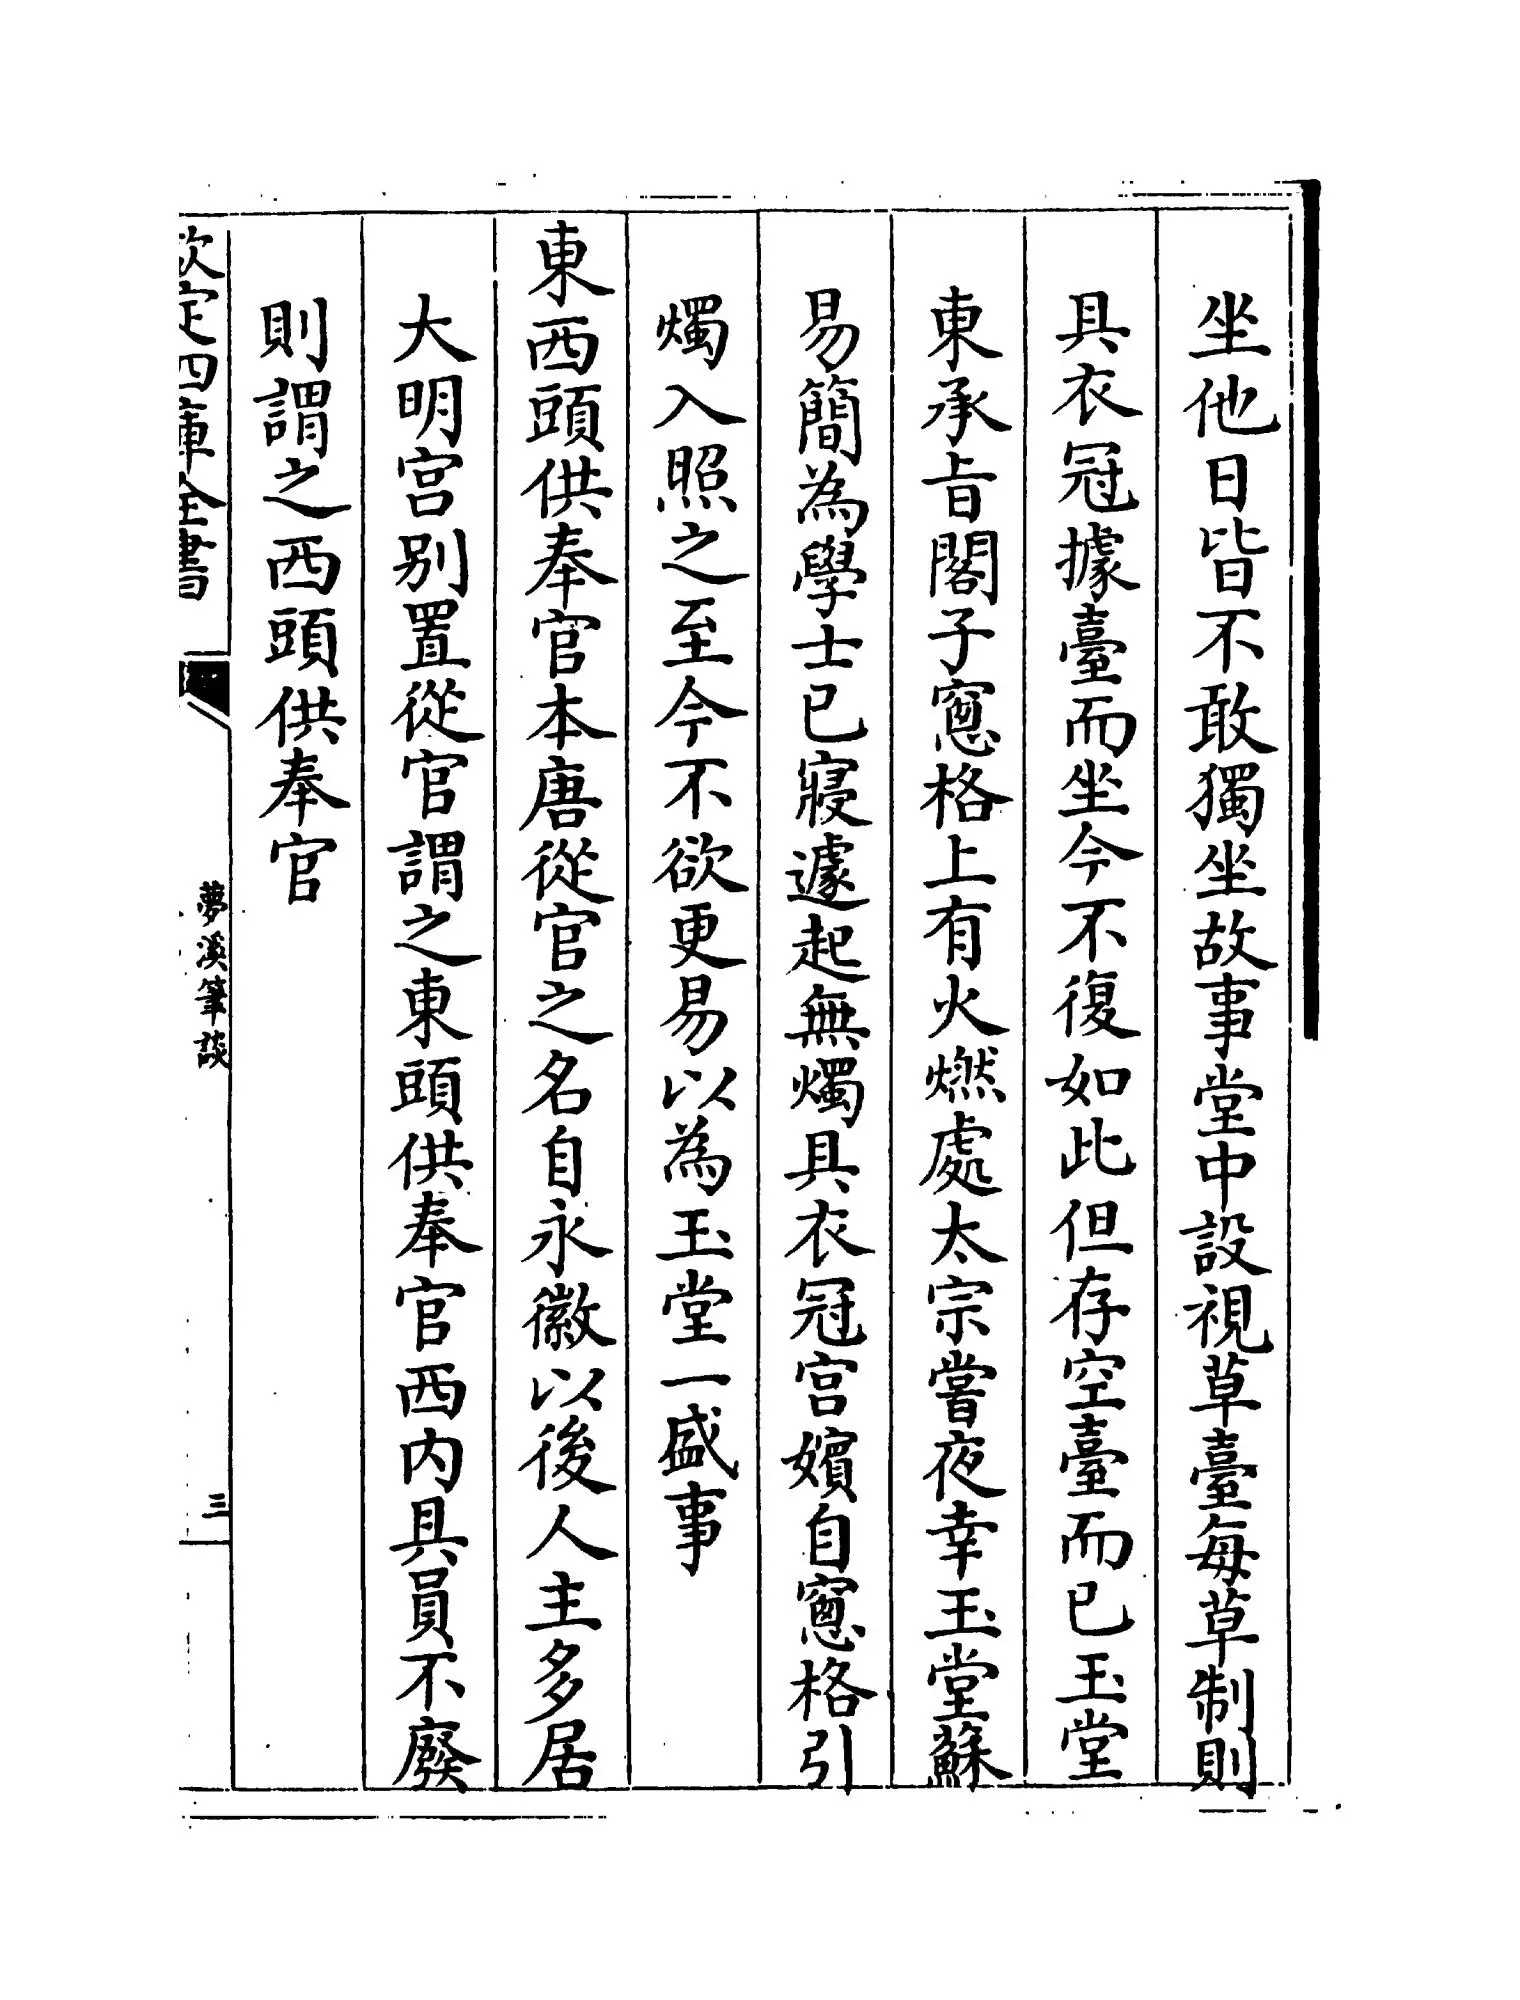 坐他日皆不敢獨坐故事堂中設視草臺每草制則
具衣冠據臺而坐今不復如此但存空臺而已玉堂
東承㫖閣子窻格上有火燃處太宗嘗夜幸玉堂蘇
易簡為學士已寢遽起無燭具衣冠宫嬪自窻格引
燭入照之至今不欲更易以為玉堂一盛事
東西頭供奉官本唐從官之名自永徽以後人主多居
大明宫别置從官謂之東頭供奉官西内具員不廢
則謂之西頭供奉官
欽定四庫全書
夢溪筆談
三